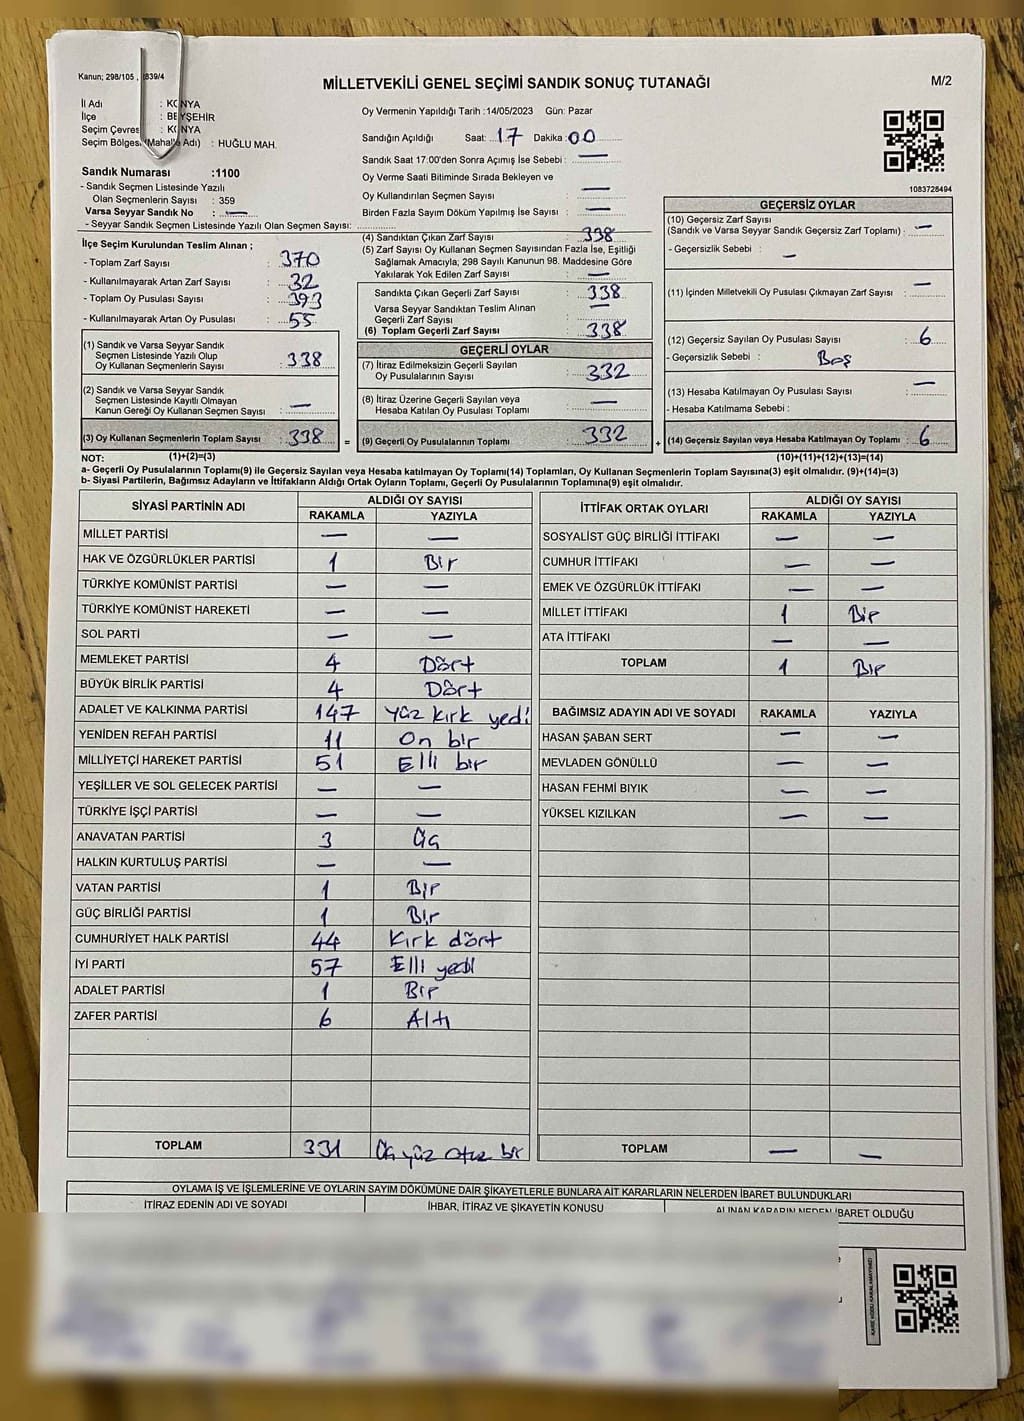 Kanun; 298/105 , 2839/4
MİLLETVEKİLİ GENEL SEÇİMİ SANDIK SONUÇ TUTANAĞI
M/2
İl Adı : KONYA
İlçe : BEYŞEHİR
Seçim Çevresi : KONYA
Seçim Bölgesi (Mahalle Adı) : HUĞLU MAH.
Sandık Numarası :1100
- Sandık Seçmen Listesinde Yazılı
Olan Seçmenlerin Sayısı : 359
Varsa Seyyar Sandık No : —
- Seyyar Sandık Seçmen Listesinde Yazılı Olan Seçmen Sayısı:
Oy Vermenin Yapıldığı Tarih :14/05/2023 Gün: Pazar
Sandığın Açıldığı Saat: 17 Dakika :00
Sandık Saat 17:00'den Sonra Açımış İse Sebebi : —
Oy Verme Saati Bitiminde Sırada Bekleyen ve
Oy Kullandırılan Seçmen Sayısı : —
Birden Fazla Sayım Döküm Yapılmış İse Sayısı : —
1083728494
İlçe Seçim Kurulundan Teslim Alınan ;
- Toplam Zarf Sayısı : 370
- Kullanılmayarak Artan Zarf Sayısı : 32
- Toplam Oy Pusulası Sayısı : 393
- Kullanılmayarak Artan Oy Pusulası : 55
(1) Sandık ve Varsa Seyyar Sandık
Seçmen Listesinde Yazılı Olup
Oy Kullanan Seçmenlerin Sayısı : 338
(2) Sandık ve Varsa Seyyar Sandık
Seçmen Listesinde Kayıtlı Olmayan
Kanun Gereği Oy Kullanan Seçmen Sayısı : —
(3) Oy Kullanan Seçmenlerin Toplam Sayısı : 338 =
(4) Sandıktan Çıkan Zarf Sayısı : 338
(5) Zarf Sayısı Oy Kullanan Seçmen Sayısından Fazla İse, Eşitliği
Sağlamak Amacıyla; 298 Sayılı Kanunun 98. Maddesine Göre
Yakılarak Yok Edilen Zarf Sayısı : —
Sandıkta Çıkan Geçerli Zarf Sayısı : 338
Varsa Seyyar Sandıktan Teslim Alınan
Geçerli Zarf Sayısı : —
(6) Toplam Geçerli Zarf Sayısı : 338
GEÇERLİ OYLAR
(7) İtiraz Edilmeksizin Geçerli Sayılan
Oy Pusulalarının Sayısı : 332
(8) İtiraz Üzerine Geçerli Sayılan veya
Hesaba Katılan Oy Pusulası Toplamı : —
(9) Geçerli Oy Pusulalarının Toplamı : 332 +
GEÇERSİZ OYLAR
(10) Geçersiz Zarf Sayısı
(Sandık ve Varsa Seyyar Sandık Geçersiz Zarf Toplamı) : —
- Geçersizlik Sebebi : —
(11) İçinden Milletvekili Oy Pusulası Çıkmayan Zarf Sayısı : —
(12) Geçersiz Sayılan Oy Pusulası Sayısı : 6
- Geçersizlik Sebebi : Boş
(13) Hesaba Katılmayan Oy Pusulası Sayısı : —
- Hesaba Katılmama Sebebi :
(14) Geçersiz Sayılan veya Hesaba Katılmayan Oy Toplamı : 6
NOT: (1)+(2)=(3) (10)+(11)+(12)+(13)=(14)
a- Geçerli Oy Pusulalarının Toplamı(9) ile Geçersiz Sayılan veya Hesaba katılmayan Oy Toplamı(14) Toplamları, Oy Kullanan Seçmenlerin Toplam Sayısına(3) eşit olmalıdır. (9)+(14)=(3)
b- Siyasi Partilerin, Bağımsız Adayların ve İttifakların Aldığı Ortak Oyların Toplamı, Geçerli Oy Pusulalarının Toplamına(9) eşit olmalıdır.
SİYASİ PARTİNİN ADI ALDIĞI OY SAYISI
RAKAMLA YAZIYLA
MİLLET PARTİSİ — —
HAK VE ÖZGÜRLÜKLER PARTİSİ 1 Bir
TÜRKİYE KOMÜNİST PARTİSİ — —
TÜRKİYE KOMÜNİST HAREKETİ — —
SOL PARTİ — —
MEMLEKET PARTİSİ 4 Dört
BÜYÜK BİRLİK PARTİSİ 4 Dört
ADALET VE KALKINMA PARTİSİ 147 Yüz kırk yedi
YENİDEN REFAH PARTİSİ 11 On bir
MİLLİYETÇİ HAREKET PARTİSİ 51 Elli bir
YEŞİLLER VE SOL GELECEK PARTİSİ — —
TÜRKİYE İŞÇİ PARTİSİ — —
ANAVATAN PARTİSİ 3 Üç
HALKIN KURTULUŞ PARTİSİ — —
VATAN PARTİSİ 1 Bir
GÜÇ BİRLİĞİ PARTİSİ 1 Bir
CUMHURİYET HALK PARTİSİ 44 Kırk dört
İYİ PARTİ 57 Elli yedi
ADALET PARTİSİ 1 Bir
ZAFER PARTİSİ 6 Altı
TOPLAM 331 Üç yüz otuz bir
İTTİFAK ORTAK OYLARI ALDIĞI OY SAYISI
RAKAMLA YAZIYLA
SOSYALİST GÜÇ BİRLİĞİ İTTİFAKI — —
CUMHUR İTTİFAKI — —
EMEK VE ÖZGÜRLÜK İTTİFAKI — —
MİLLET İTTİFAKI 1 Bir
ATA İTTİFAKI — —
TOPLAM 1 Bir
BAĞIMSIZ ADAYIN ADI VE SOYADI RAKAMLA YAZIYLA
HASAN ŞABAN SERT — —
MEVLADEN GÖNÜLLÜ — —
HASAN FEHMİ BIYIK — —
YÜKSEL KIZILKAN — —
TOPLAM — —
OYLAMA İŞ VE İŞLEMLERİNE VE OYLARIN SAYIM DÖKÜMÜNE DAİR ŞİKAYETLERLE BUNLARA AİT KARARLARIN NELERDEN İBARET BULUNDUKLARI
İTİRAZ EDENİN ADI VE SOYADI İHBAR, İTİRAZ VE ŞİKAYETİN KONUSU ALINAN KARARIN NEDEN İBARET OLDUĞU
KARE KODU KARALAMAYINIZ!